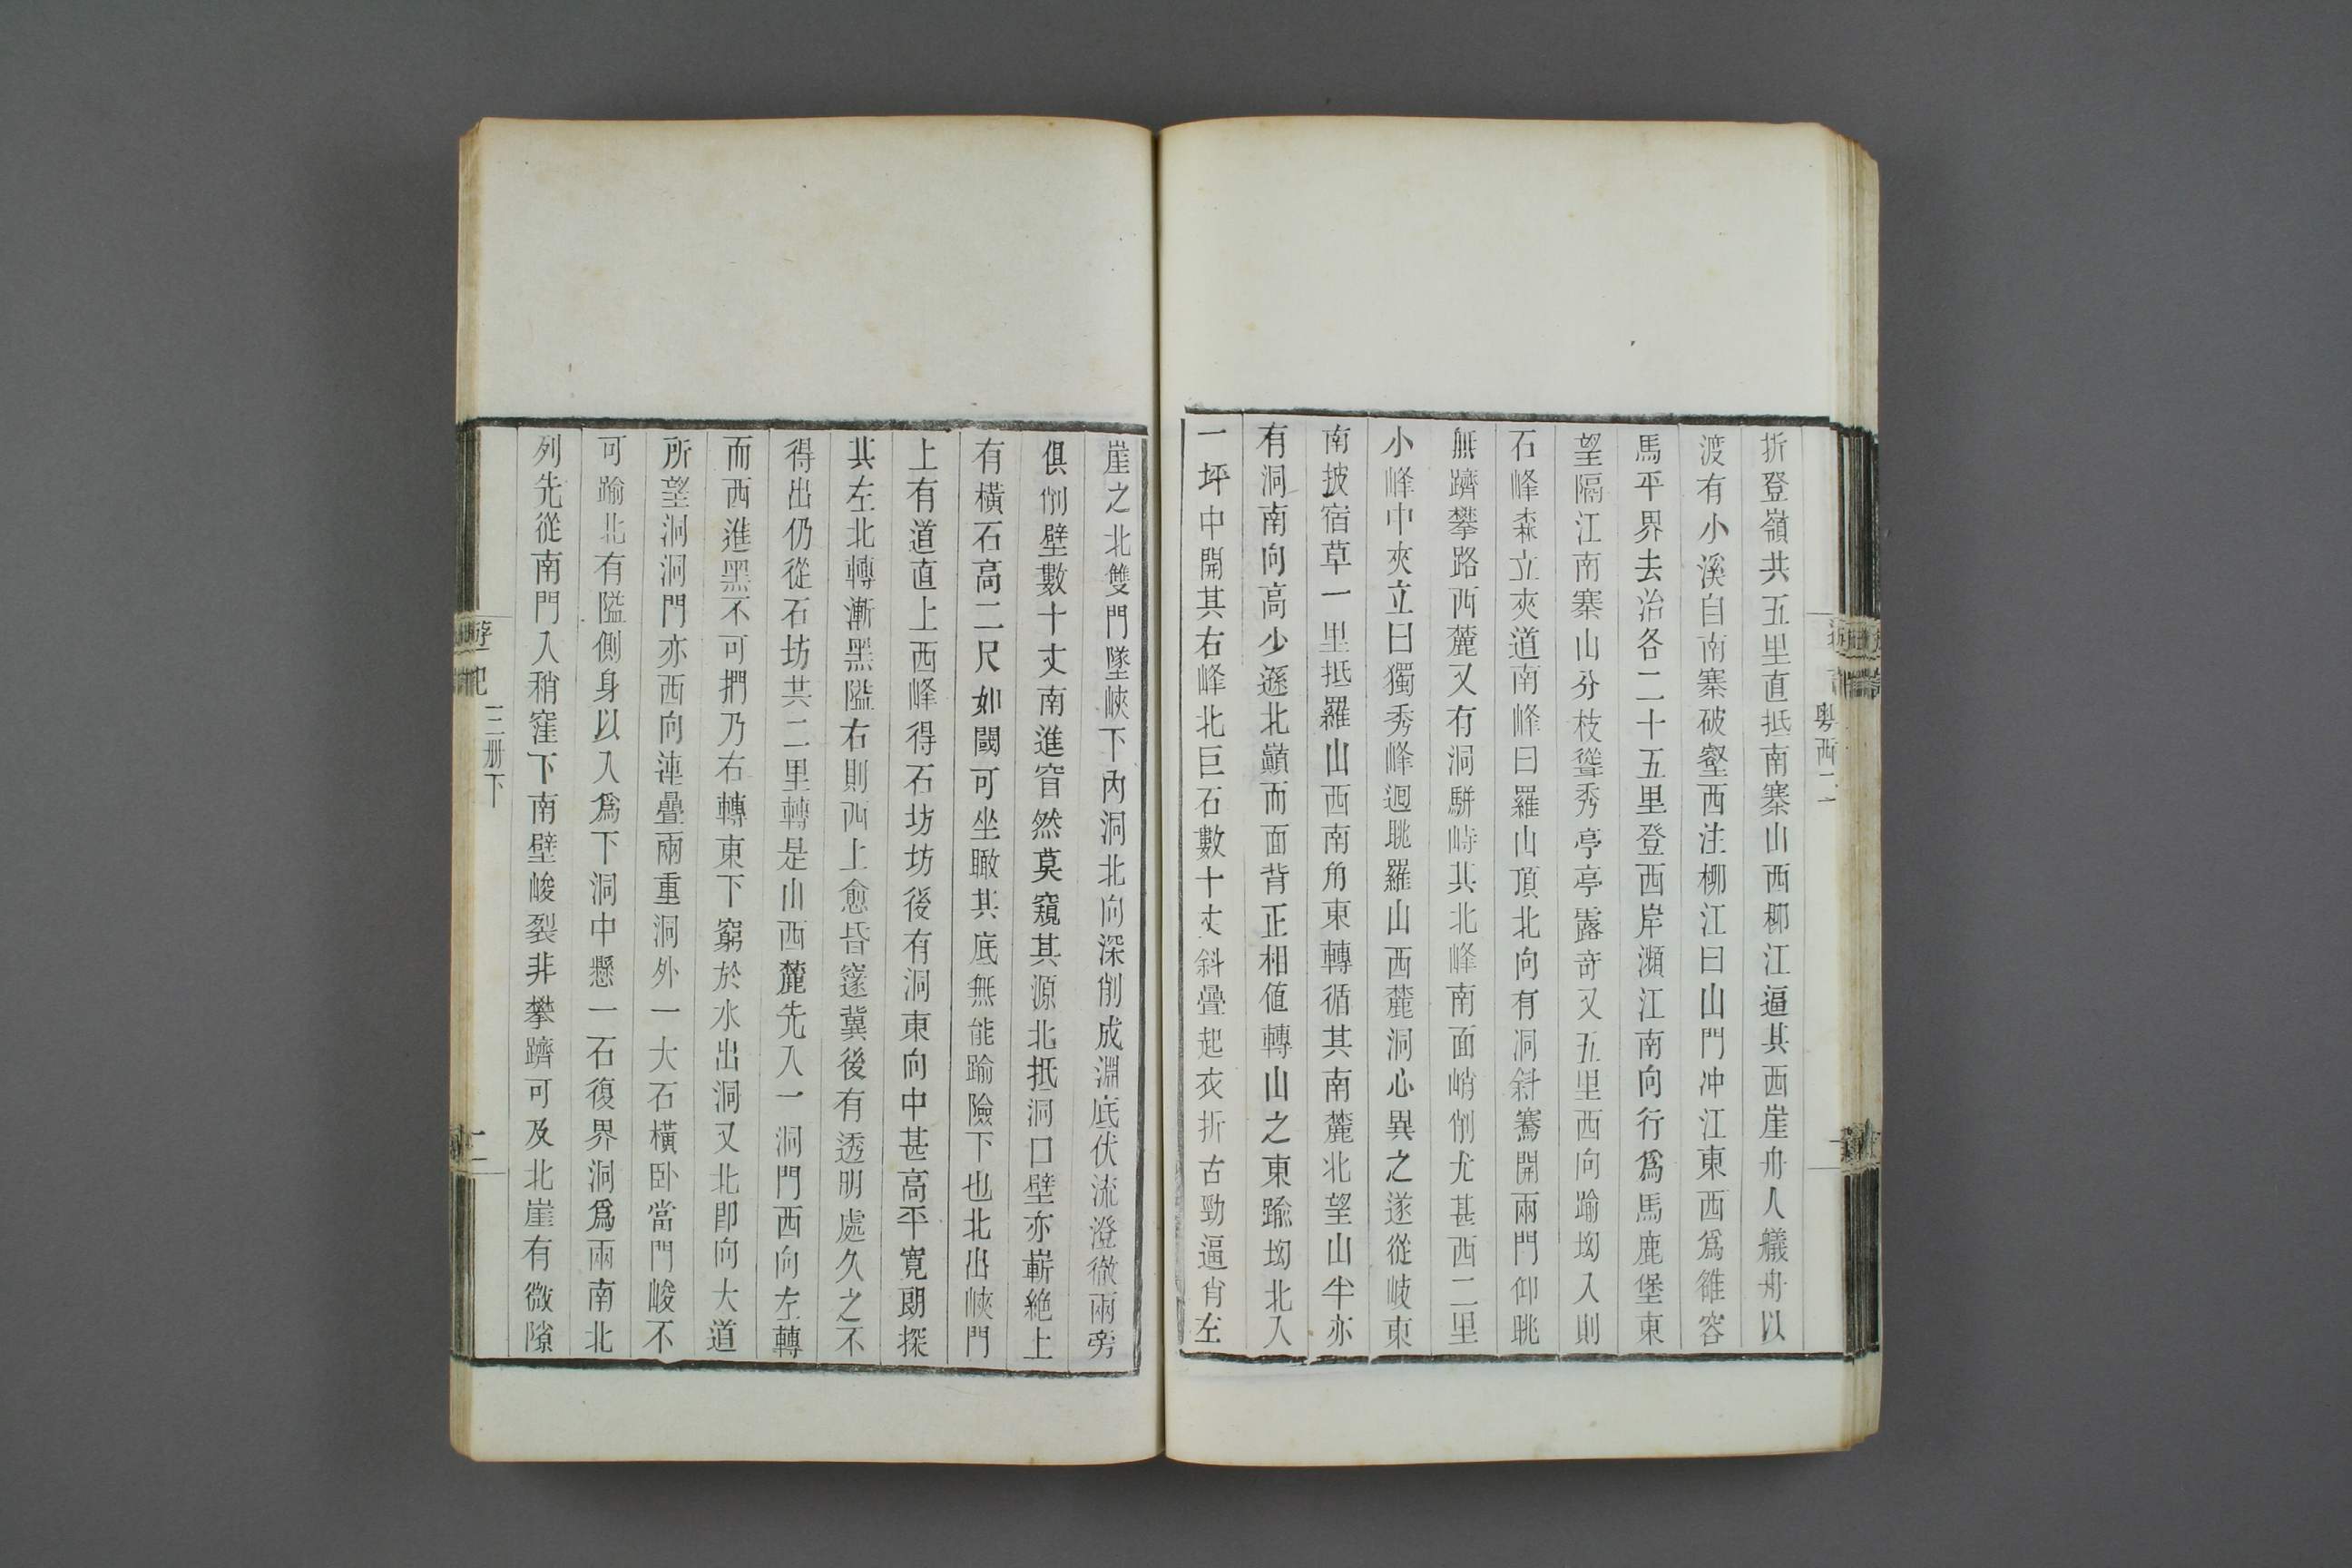 折登嶺共五里直抵南寨山西柳江逼其西崖舟人艤舟以
渡有小溪自南寨破壑西注柳江曰山門冲江東西爲雒容
馬平界去治各二十五里登西岸瀕江南向行爲馬鹿堡東
望隔江南寨山分枝聳秀亭亭露竒又五里西向踰坳入則
石峰森立夾道南峰曰羅山頂北向有洞斜騫開兩門仰眺
無躋攀路西麓又有洞駢峙其北峰南面峭削尤甚西二里
小峰中夾立曰獨秀峰迴眺羅山西麓洞心異之遂從岐東
南披宿草一里抵羅山西南角東轉循其南麓北望山半亦
有洞南向高少遜北巔而面背正相值轉山之東踰坳北入
一坪中開其右峰北巨石數十丈斜疊起衣折古勁逼肖左
崖之北雙門墜峽下內洞北向深削成淵底伏流澄徹兩旁
俱削壁數十丈南進窅然莫窺其源北抵洞口壁亦嶄絶上
有橫石高二尺如閾可坐瞰其底無能踰險下也北出峽門
上有道直上西峰得石坊坊後有洞東向中甚高平寬朗探
其左北轉漸黑隘右則西上愈昏邃冀後有透明處久之不
得出仍從石坊共二里轉是山西麓先入一洞門西向左轉
而西進黑不可捫乃右轉東下窮於水出洞又北卽向大道
所望洞洞門亦西向連疊兩重洞外一大石橫臥當門峻不
可踰北有隘側身以入爲下洞中懸一石復界洞爲兩南北
列先從南門入稍窪下南壁峻裂非攀躋可及北崖有微隙
粵西二
遊記
三册下
二